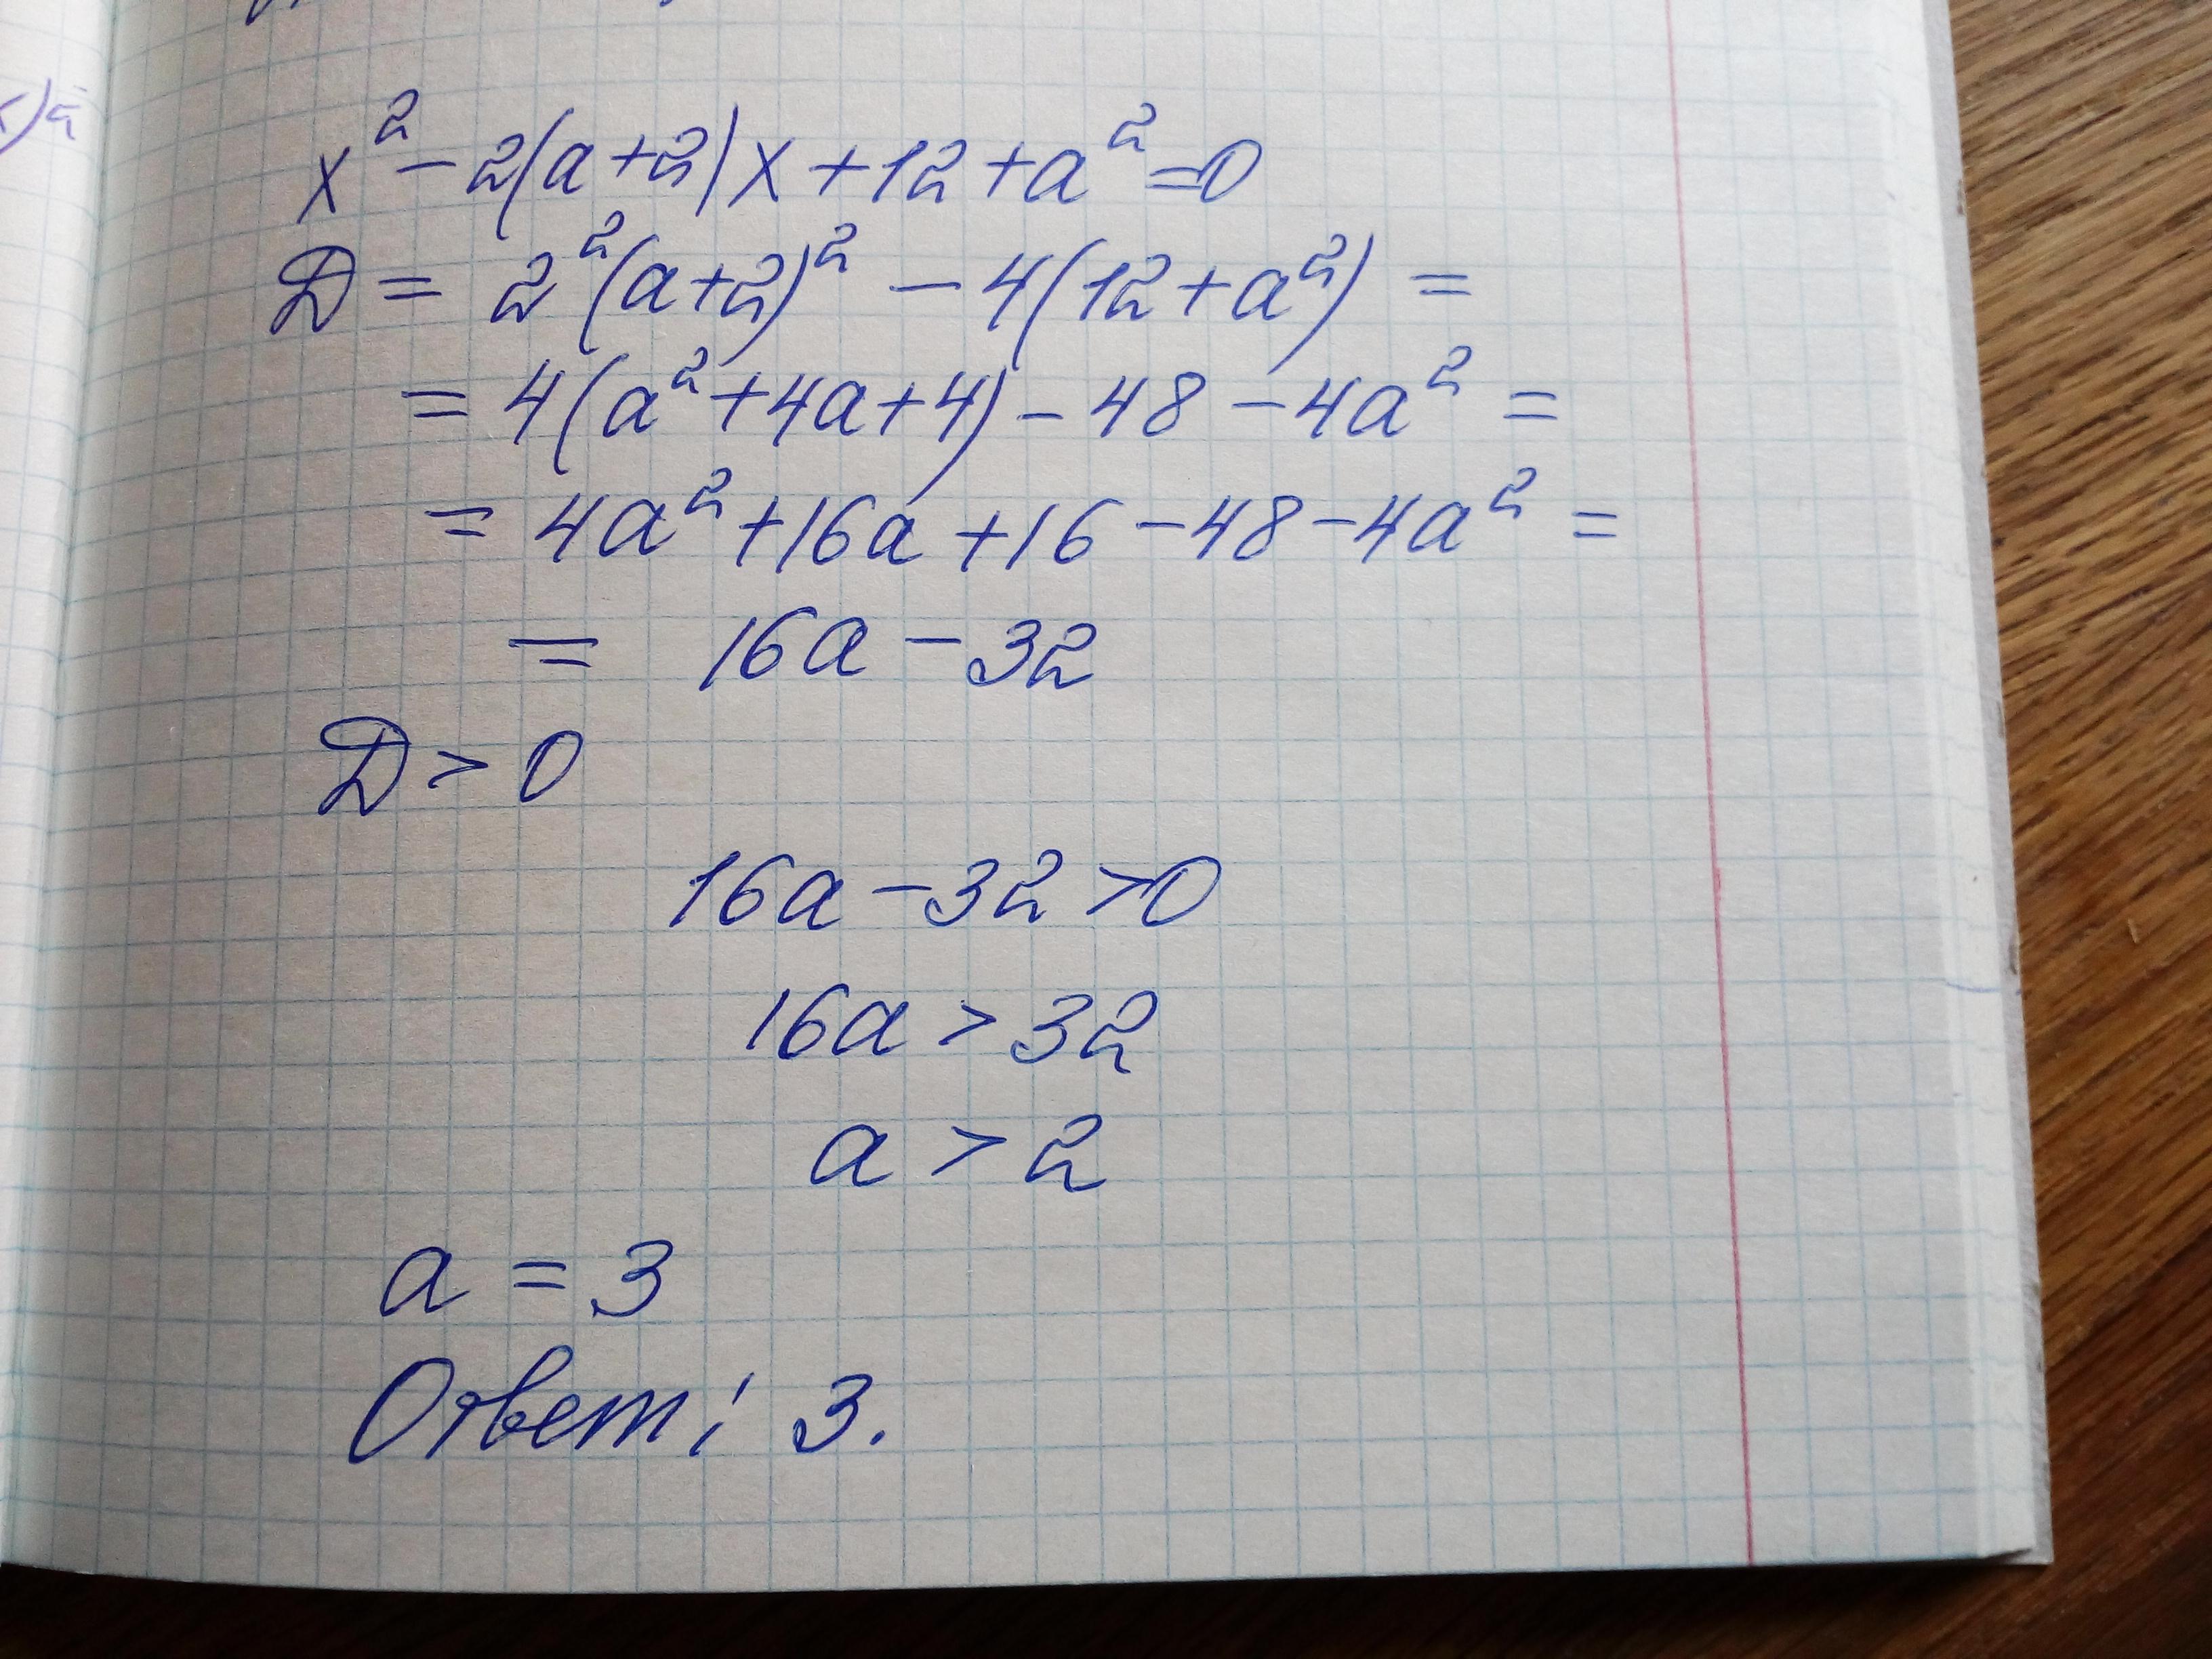 x² - 2(a+2)x + 12 + a² = 0
D = 2²(a+2)² - 4(12+a²) =
= 4(a²+4a+4) - 48 - 4a² =
= 4a² + 16a + 16 - 48 - 4a² =
= 16a - 32
D > 0
16a - 32 > 0
16a > 32
a > 2
a = 3
Ответ: 3.